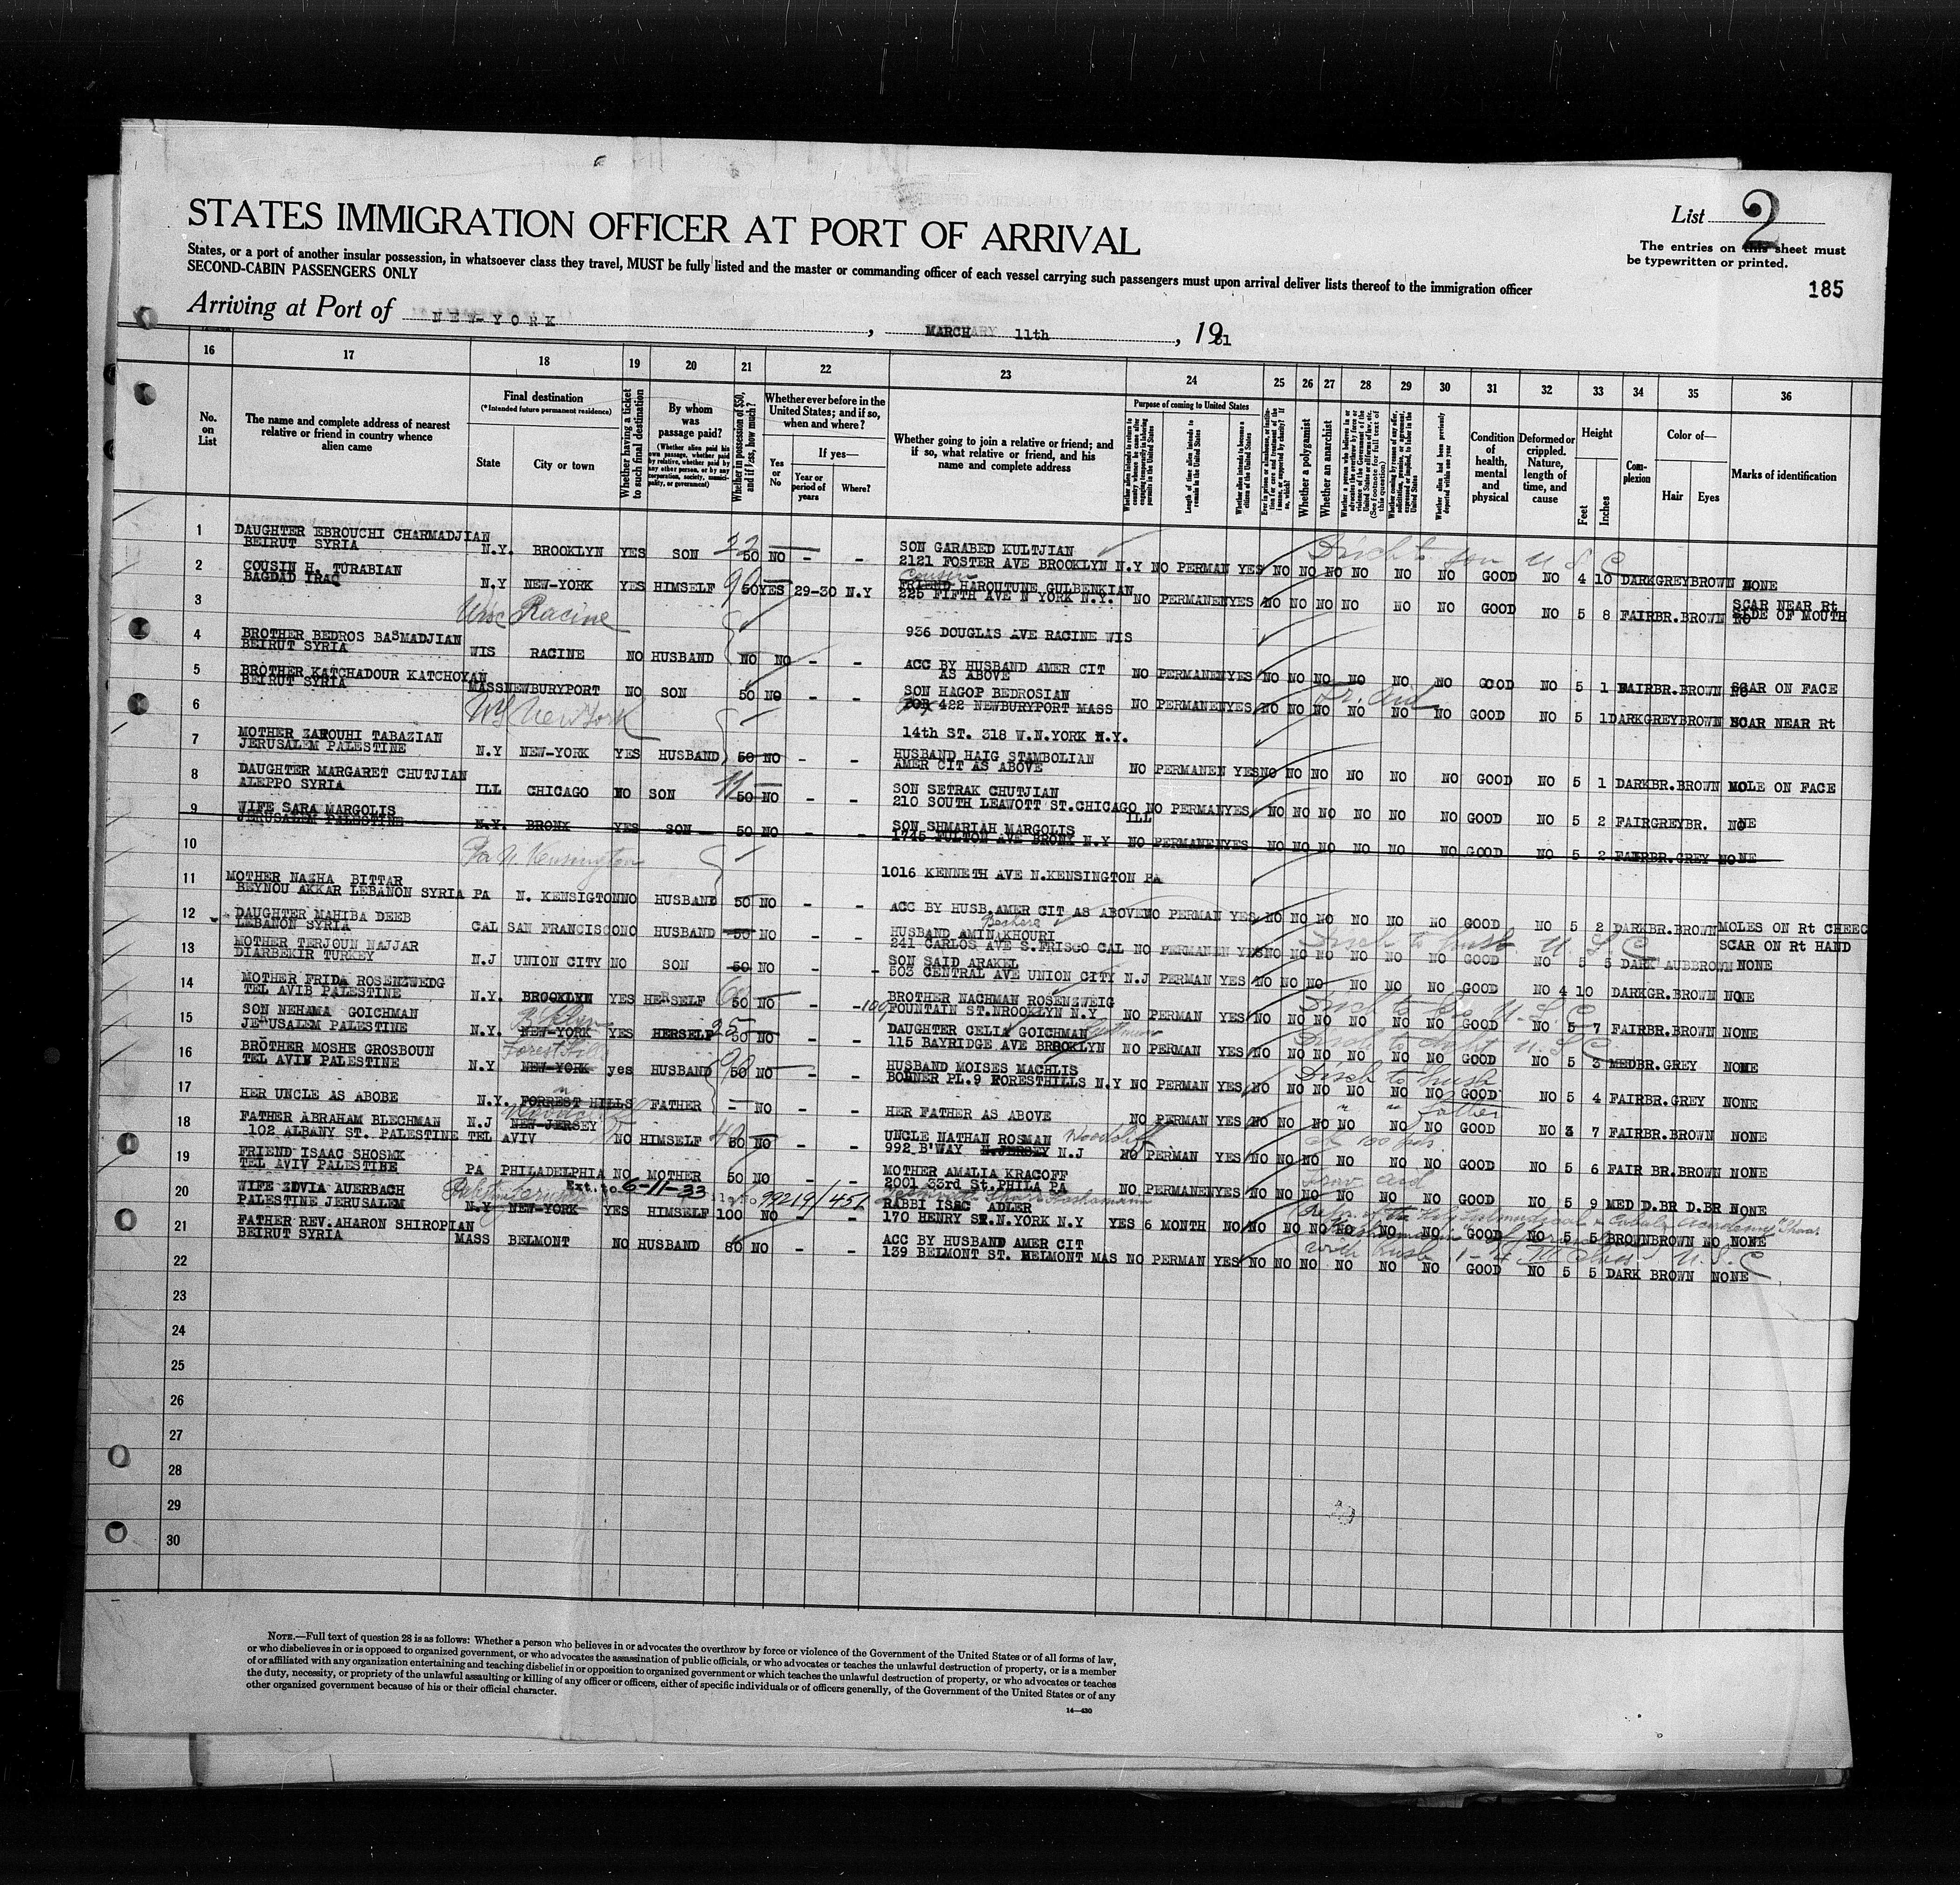 List 2
The entries on this sheet must
be typewritten or printed.
185
STATES IMMIGRATION OFFICER AT PORT OF ARRIVAL
States, or a port of another insular possession, in whatsoever class they travel, MUST be fully listed and the master or commanding officer of each vessel carrying such passengers must upon arrival deliver lists thereof to the immigration officer
SECOND-CABIN PASSENGERS ONLY
Arriving at Port of NEW-YORK, MARCH 11th, 1931
16 17 18 19 20 21 22 23 24 25 26 27 28 29 30 31 32 33 34 35 36
No. on List
The name and complete address of nearest relative or friend in country whence alien came
Final destination
(*Intended future permanent residence)
State
City or town
Whether having a ticket to such final destination
By whom was passage paid?
(Whether alien paid his own passage, whether paid by relative, whether paid by any other person, or by any corporation, society, municipality, or government)
Whether in possession of $50, and if less, how much?
Whether ever before in the United States; and if so, when and where?
Yes or No
If yes—
Year or period of years
Where?
Whether going to join a relative or friend; and if so, what relative or friend, and his name and complete address
Purpose of coming to United States
Length of time alien intends to remain in the United States
Whether alien intends to become a citizen of the United States
Whether a polygamist
Whether an anarchist
Whether alien had been previously deported within one year
Condition of health, mental and physical
Deformed or crippled. Nature, length of time, and cause
Height
Feet
Inches
Complexion
Color of—
Hair
Eyes
Marks of identification
1 DAUGHTER EBROUCHI CHARMADJIAN
BEIRUT SYRIA N.Y. BROOKLYN YES SON 22 50 NO - - SON GARABED KULTJIAN
2121 FOSTER AVE BROOKLYN N.Y NO PERMAN YES NO NO NO NO NO NO GOOD NO 4 10 DARK GREY BROWN NONE
2 COUSIN H. TURABIAN
BAGDAD IRAC N.Y NEW-YORK YES HIMSELF 90 50 YES 29-30 N.Y Cousin FRIEND HAROUTUNE GULBENKIAN
225 FIFTH AVE N YORK N.Y. NO PERMANEN YES NO NO NO NO NO NO GOOD NO 5 8 FAIR BR. BROWN SCAR NEAR Rt
SIDE OF MOUTH
3 Wisc Racine 936 DOUGLAS AVE RACINE WIS
4 BROTHER BEDROS BASMADJIAN
BEIRUT SYRIA WIS RACINE NO HUSBAND NO NO - - ACC BY HUSBAND AMER CIT
AS ABOVE NO PERMANEN YES NO NO NO NO NO NO GOOD NO 5 1 FAIR BR. BROWN SCAR ON FACE
5 BROTHER KATCHADOUR KATCHOYAN
BEIRUT SYRIA MASS NEWBURYPORT NO SON 50 NO - - SON HAGOP BEDROSIAN
BOX 422 NEWBURYPORT MASS NO PERMANEN YES NO NO NO NO NO NO GOOD NO 5 1 DARK GREY BROWN SCAR NEAR Rt
6 NY New York 14th ST. 318 W.N.YORK N.Y.
7 MOTHER ZAROUHI TABAZIAN
JERUSALEM PALESTINE N.Y NEW-YORK YES HUSBAND 50 NO - - HUSBAND HAIG STAMBOLIAN
AMER CIT AS ABOVE NO PERMANEN YES NO NO NO NO NO NO GOOD NO 5 1 DARK BR. BROWN MOLE ON FACE
8 DAUGHTER MARGARET CHUTJIAN
ALEPPO SYRIA ILL CHICAGO NO SON 50 NO - - SON SETRAK CHUTJIAN
210 SOUTH LEAWOTT ST.CHICAGO ILL NO PERMAN YES NO NO NO NO NO NO GOOD NO 5 2 FAIR GREY BR. NONE
9 WIFE SARA MARGOLIS
JERUSALEM PALESTINE N.Y. BRONX YES SON 50 NO - - SON SHMARIAH MARGOLIS
1745 FULTON AVE BRONX N.Y NO PERMANEN YES NO NO NO NO NO NO GOOD NO 5 2 FAIR BR. GREY NONE
10 Pa N. Kensington 1016 KENNETH AVE N.KENSINGTON PA
11 MOTHER NAZHA BITTAR
BEYNOU AKKAR LEBANON SYRIA PA N. KENSIGTON NO HUSBAND 50 NO - - ACC BY HUSB.AMER CIT AS ABOVE NO PERMAN YES NO NO NO NO NO NO GOOD NO 5 2 DARK BR. BROWN MOLES ON Rt CHEEC
12 DAUGHTER MAHIBA DEEB
LEBANON SYRIA CAL SAN FRANCISCO NO HUSBAND 50 NO - - HUSBAND AMIN AKHOURI
241 CARLOS AVE S.FRISCO CAL NO PERMANEN YES NO NO NO NO NO NO GOOD NO 5 5 DARK AUB BROWN SCAR ON Rt HAND
NONE
13 MOTHER TERJOUN NAJJAR
DIARBEKIR TURKEY N.J UNION CITY NO SON 50 NO - - SON SAID ARAKEL
503 CENTRAL AVE UNION CITY N.J PERMAN YES NO NO NO NO NO NO GOOD NO 4 10 DARK GR. BROWN NONE
14 MOTHER FRIDA ROSENZWEDG
TEL AVIB PALESTINE N.Y. BROOKLYN YES HERSELF 50 NO - - BROTHER NACHMAN ROSENZWEIG
FOUNTAIN ST.NROOKLYN N.Y. NO PERMAN YES NO NO NO NO NO NO GOOD NO 5 7 FAIR BR. BROWN NONE
15 SON NEHAMA GOICHMAN
JERUSALEM PALESTINE N.Y. NEW-YORK YES HERSELF 25 50 NO - - DAUGHTER CELIA GOICHMAN
115 BAYRIDGE AVE BROOKLYN NO PERMAN YES NO NO NO NO NO NO GOOD NO 5 3 MED BR. GREY NONE
16 BROTHER MOSHE GROSBOUN
TEL AVIV PALESTINE N.Y Forest Hills NEW-YORK yes HUSBAND 50 NO - - HUSBAND MOISES MACHLIS
BOHNER PL.9 FORESTHILLS N.Y NO PERMAN YES NO NO NO NO NO NO GOOD NO 5 4 FAIR BR. GREY NONE
17 HER UNCLE AS ABOBE N.Y. FORREST HILLS FATHER - NO HER FATHER AS ABOVE NO PERMAN YES NO NO NO NO NO NO GOOD NO 3 7 FAIR BR. BROWN NONE
18 FATHER ABRAHAM BLECHMAN N.J NEW-JERSEY
102 ALBANY ST. PALESTINE TEL AVIV NO HIMSELF 50 NO - - UNCLE NATHAN ROSMAN
992 B'WAY N.JERSEY N.J NO PERMAN YES NO NO NO NO NO NO GOOD NO 5 6 FAIR BR. BROWN NONE
19 FRIEND ISAAC SHOSMK
TEL AVIV PALESTINE PA PHILADELPHIA NO MOTHER 50 NO - - MOTHER AMALIA KRACOFF
2001 33rd St.PHILA PA NO PERMANEN YES NO NO NO NO NO NO GOOD NO 5 9 MED D.BR D.BR NONE
Ext. to 6-11-33 99219/451
20 WIFE ZDVIA AUERBACH
PALESTINE JERUSALEM N.Y NEW-YORK YES HIMSELF 100 NO - - RABBI ISAC ADLER
170 HENRY ST.N.YORK N.Y YES 6 MONTH NO NO NO NO NO NO NO GOOD NO 5 5 BROWN BROWN NO NONE
21 FATHER REV.AHARON SHIROPIAN
BEIRUT SYRIA MASS BELMONT NO HUSBAND 80 NO - - ACC BY HUSBAND AMER CIT
139 BELMONT ST. BELMONT MAS NO PERMAN YES NO NO NO NO NO NO GOOD NO 5 5 DARK BROWN NONE
22
23
24
25
26
27
28
29
30
NOTE.—Full text of question 28 is as follows: Whether a person who believes in or advocates the overthrow by force or violence of the Government of the United States or of all forms of law,
or who disbelieves in or is opposed to organized government, or who advocates the assassination of public officials, or who advocates or teaches the unlawful destruction of property, or is a member
of or affiliated with any organization entertaining and teaching disbelief in or opposition to organized government or which teaches the unlawful destruction of property, or who advocates or teaches
the duty, necessity, or propriety of the unlawful assaulting or killing of any officer or officers, either of specific individuals or of officers generally, of the Government of the United States or of any
other organized government because of his or their official character.
14—430